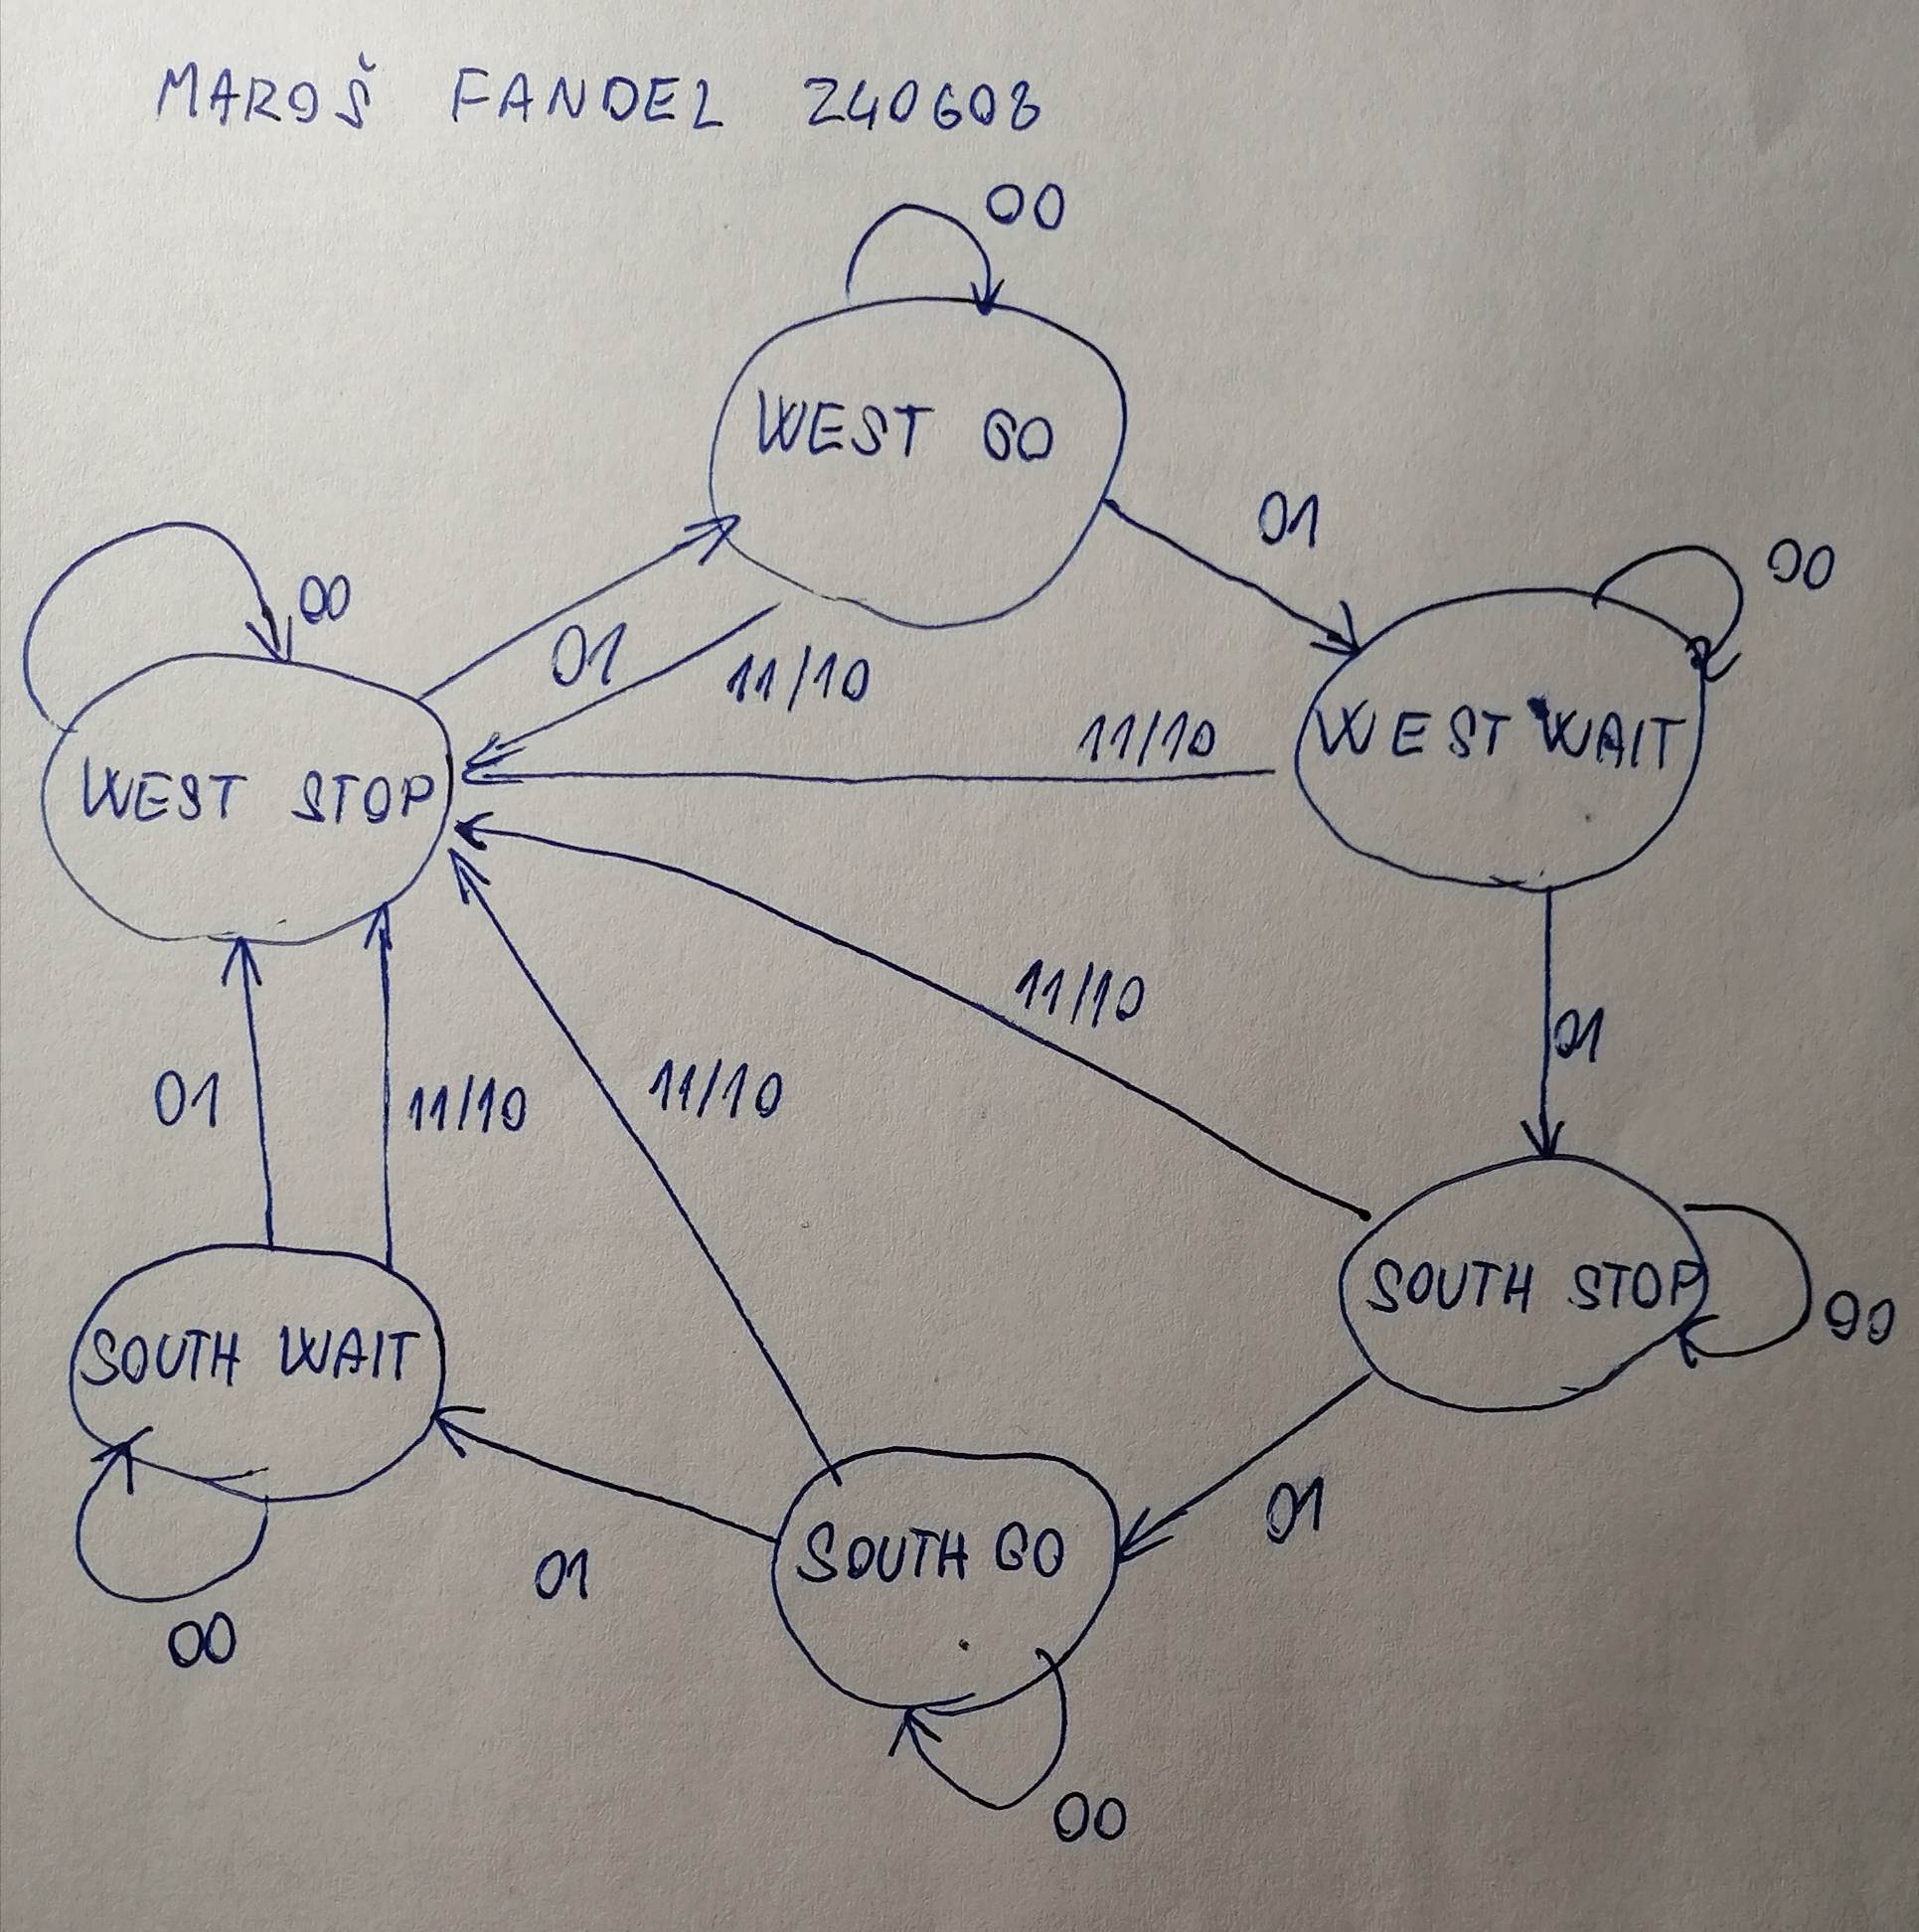 MAROŠ FANDEL 240608
00
WEST GO
01
00
00
01
11/10
11/10
WEST WAIT
WEST STOP
11/10
01
01
11/10
11/10
SOUTH STOP
00
SOUTH WAIT
01
SOUTH GO
01
00
00